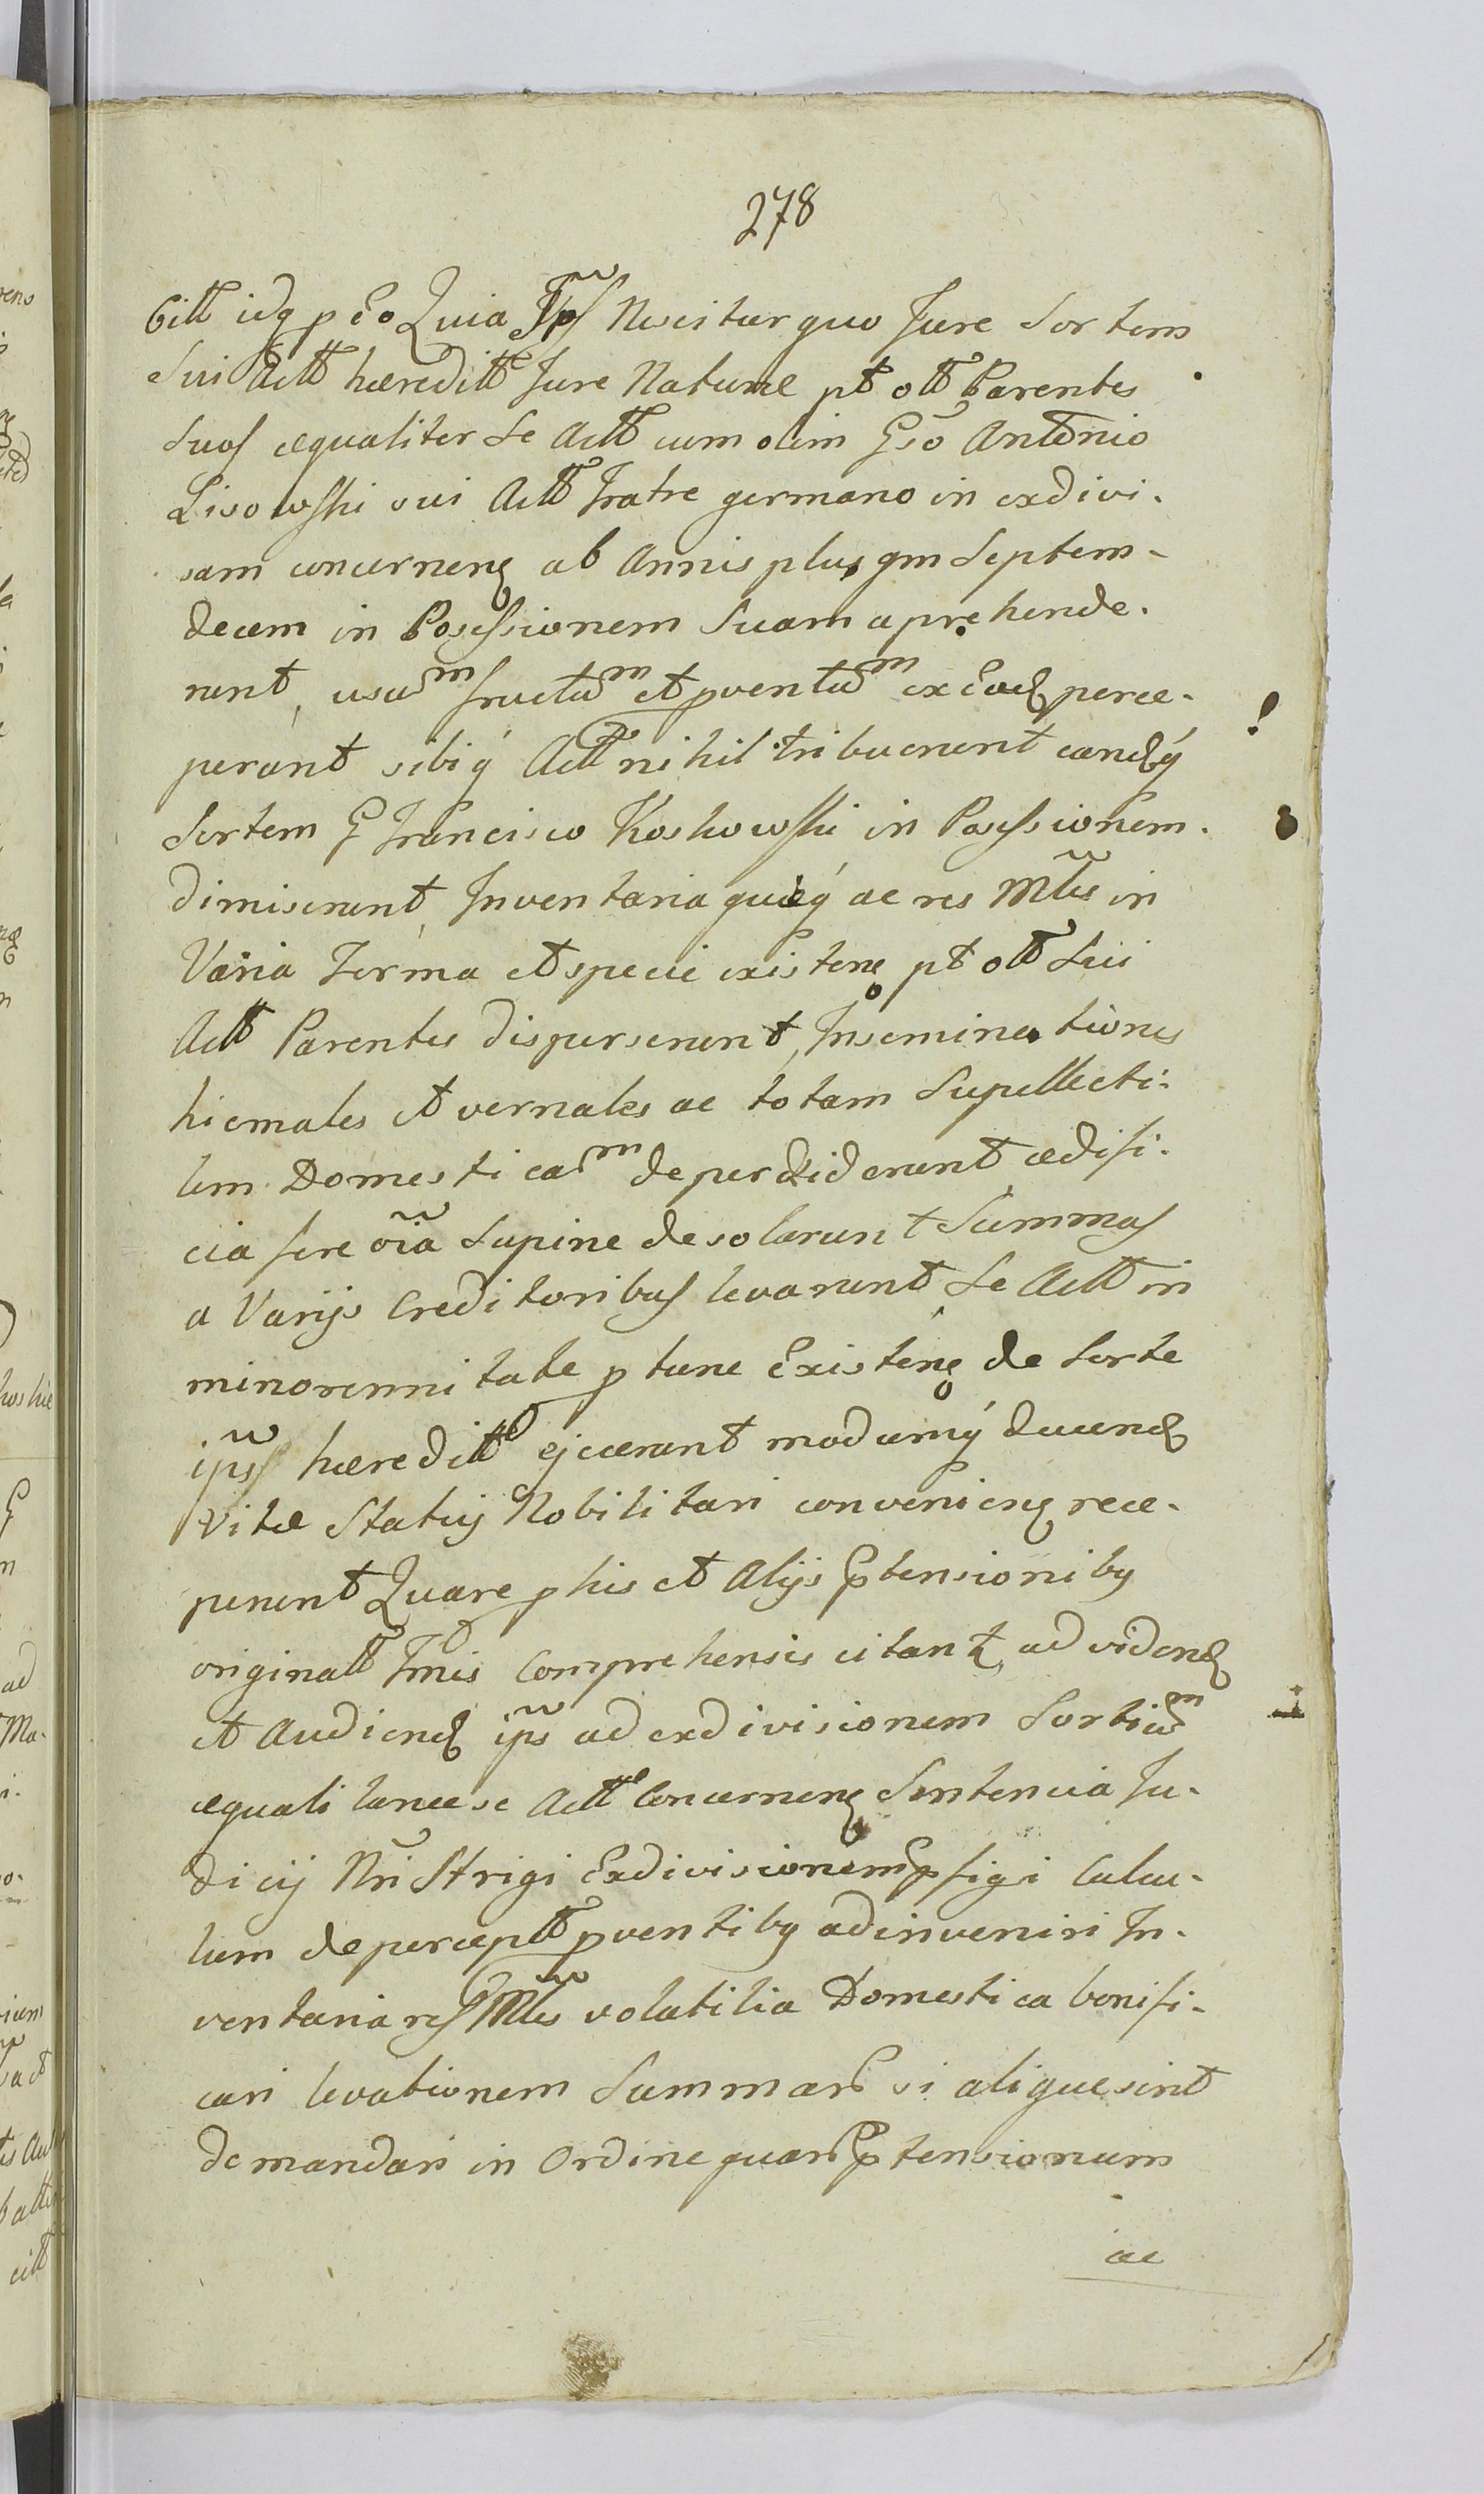 278
bitt idq p Eo Quia Ipsi Nescitur quo Jure Sortem
Sui Actt hæreditt Jure Naturæ pt ott Parentes
Suos æqualiter Se Actt cum olim Gso Antonio
Lisowski sui Actt Fratre germano in exdivi-
sam concernen ab Annis plus qm Septem-
decem in Possessionem Suam aprehende-
runt, usum fructum et proventum ex Ead perce-
perunt sibiq Actt nihil tribuerunt eandq
Sortem G Francisco Koskowski in Possessionem
dimiserunt, Inventaria quæq ac res Mbles in
Varia Forma et specie existen pt ott Sui
Actt Parentes disperserunt, Inseminationes
hiemales et vernales ac totam Supellecti-
lem Domesticam deperdiderunt, ædifi-
cia fere oia Supine desolarunt Summas
a Varijs Creditoribus levarunt, Se Actt in
minorennitate p tunc Existen de Sorte
ips hæreditt ejecerunt modumq ducend
Vitæ Statuj Nobilitari convenien rece-
perunt Quare p his et Alijs Ptensionibus
originatt Tmis Comprehensis citant, ad vidend
et Audiend ips ad exdivisionem Sortium
æquali lance se Actt Concernen Sentencia Ju-
dicij Nri Strigi Exdivisionem pfigi Calcu-
lum de perceptt proventibus adinveniri In-
ventaria res Mbles volatilia Domestica bonifi-
cari levationem Summar si aliquæ sint
demandari in Ordine quar Ptensionum
ac